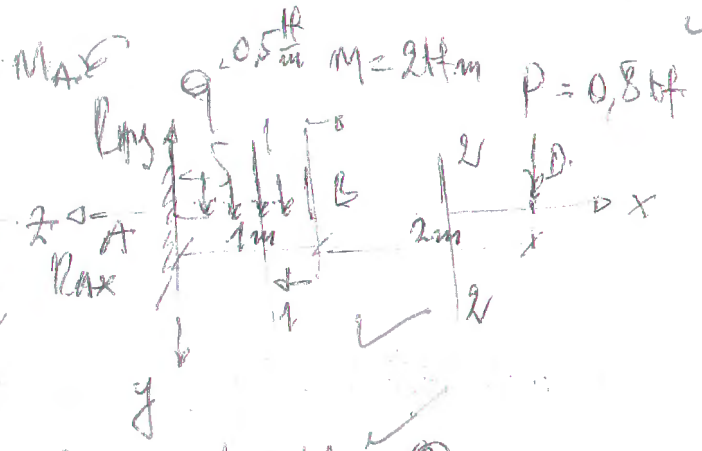 MA
0,5 tf/m M = 2tf.m
P = 0,8 tf
RAy
1 2
B D
Z A 1m 2m x
RAx
1 2
y